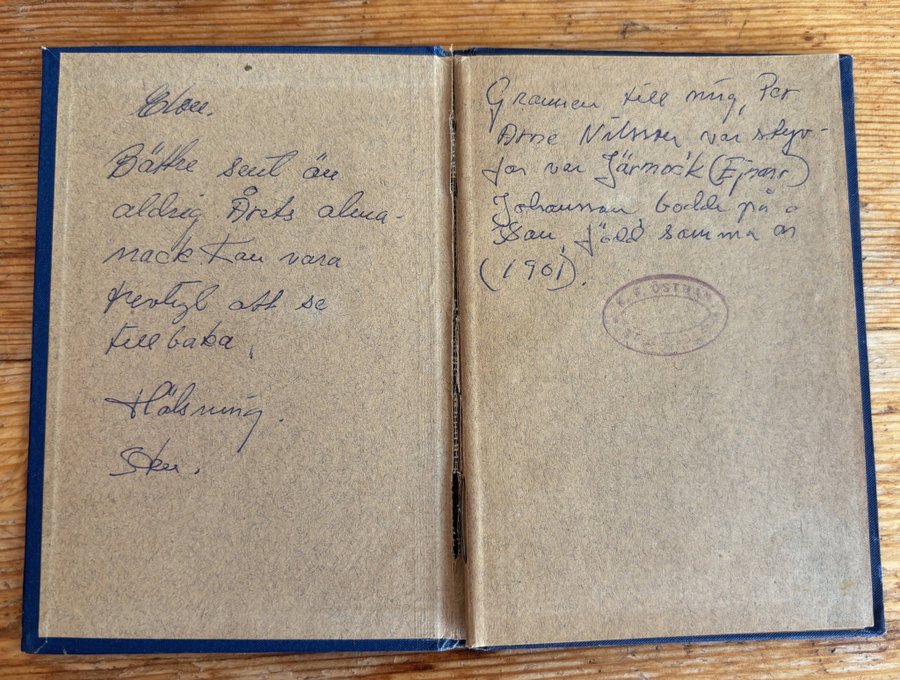 Bättre sent än
aldrig Årets alma-
nack kan vara
trevligt att se
tillbaka.
Hälsning.
Sten.
Grannen till mig, Per
Arne Nilsson var styv-
far var Järnock (Ejnar)
Johansson, bodde på
född samma år
(1901).
ÖSTMAN